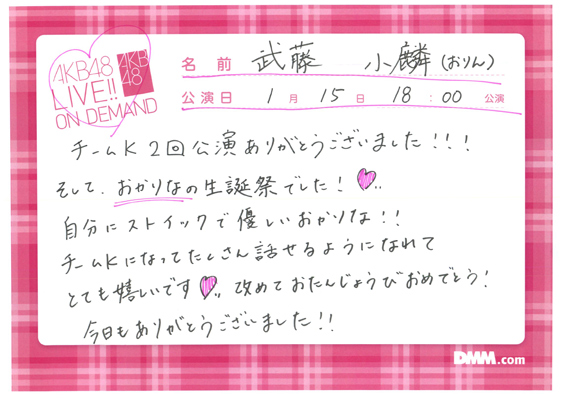 AKB48
LIVE!!
ON DEMAND
AKB
48
名前 武藤 小麟(おりん)
公演日 1月15日 18:00 公演
チームK 2回公演ありがとうございました!!!
そして、おかりなの生誕祭でした!
自分にストイックで優しいおかりな!!
チームKになってたくさん話せるようになれて
とても嬉しいです 改めておたんじょうびおめでとう!
今日もありがとうございました!!
DMM.com